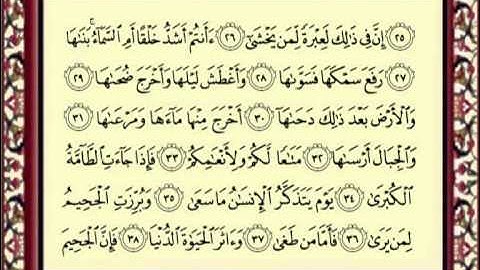 ﴿٢٥﴾ إِنَّ فِى ذَٰلِكَ لَعِبْرَةً لِّمَن يَخْشَىٰٓ ﴿٢٦﴾ ءَأَنتُمْ أَشَدُّ خَلْقًا أَمِ ٱلسَّمَآءُ ۚ بَنَىٰهَا
﴿٢٧﴾ رَفَعَ سَمْكَهَا فَسَوَّىٰهَا ﴿٢٨﴾ وَأَغْطَشَ لَيْلَهَا وَأَخْرَجَ ضُحَىٰهَا ﴿٢٩﴾
وَٱلْأَرْضَ بَعْدَ ذَٰلِكَ دَحَىٰهَآ ﴿٣٠﴾ أَخْرَجَ مِنْهَا مَآءَهَا وَمَرْعَىٰهَا ﴿٣١﴾
وَٱلْجِبَالَ أَرْسَىٰهَا ﴿٣٢﴾ مَتَٰعًا لَّكُمْ وَلِأَنْعَٰمِكُمْ ﴿٣٣﴾ فَإِذَا جَآءَتِ ٱلطَّآمَّةُ
ٱلْكُبْرَىٰ ﴿٣٤﴾ يَوْمَ يَتَذَكَّرُ ٱلْإِنسَٰنُ مَا سَعَىٰ ﴿٣٥﴾ وَبُرِّزَتِ ٱلْجَحِيمُ
لِمَن يَرَىٰ ﴿٣٦﴾ فَأَمَّا مَن طَغَىٰ ﴿٣٧﴾ وَءَاثَرَ ٱلْحَيَوٰةَ ٱلدُّنْيَا ﴿٣٨﴾ فَإِنَّ ٱلْجَحِيمَ